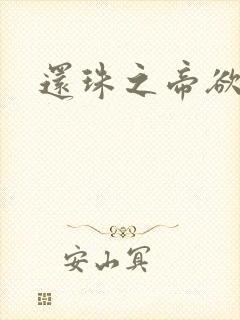 還珠之帝欲
安山冥